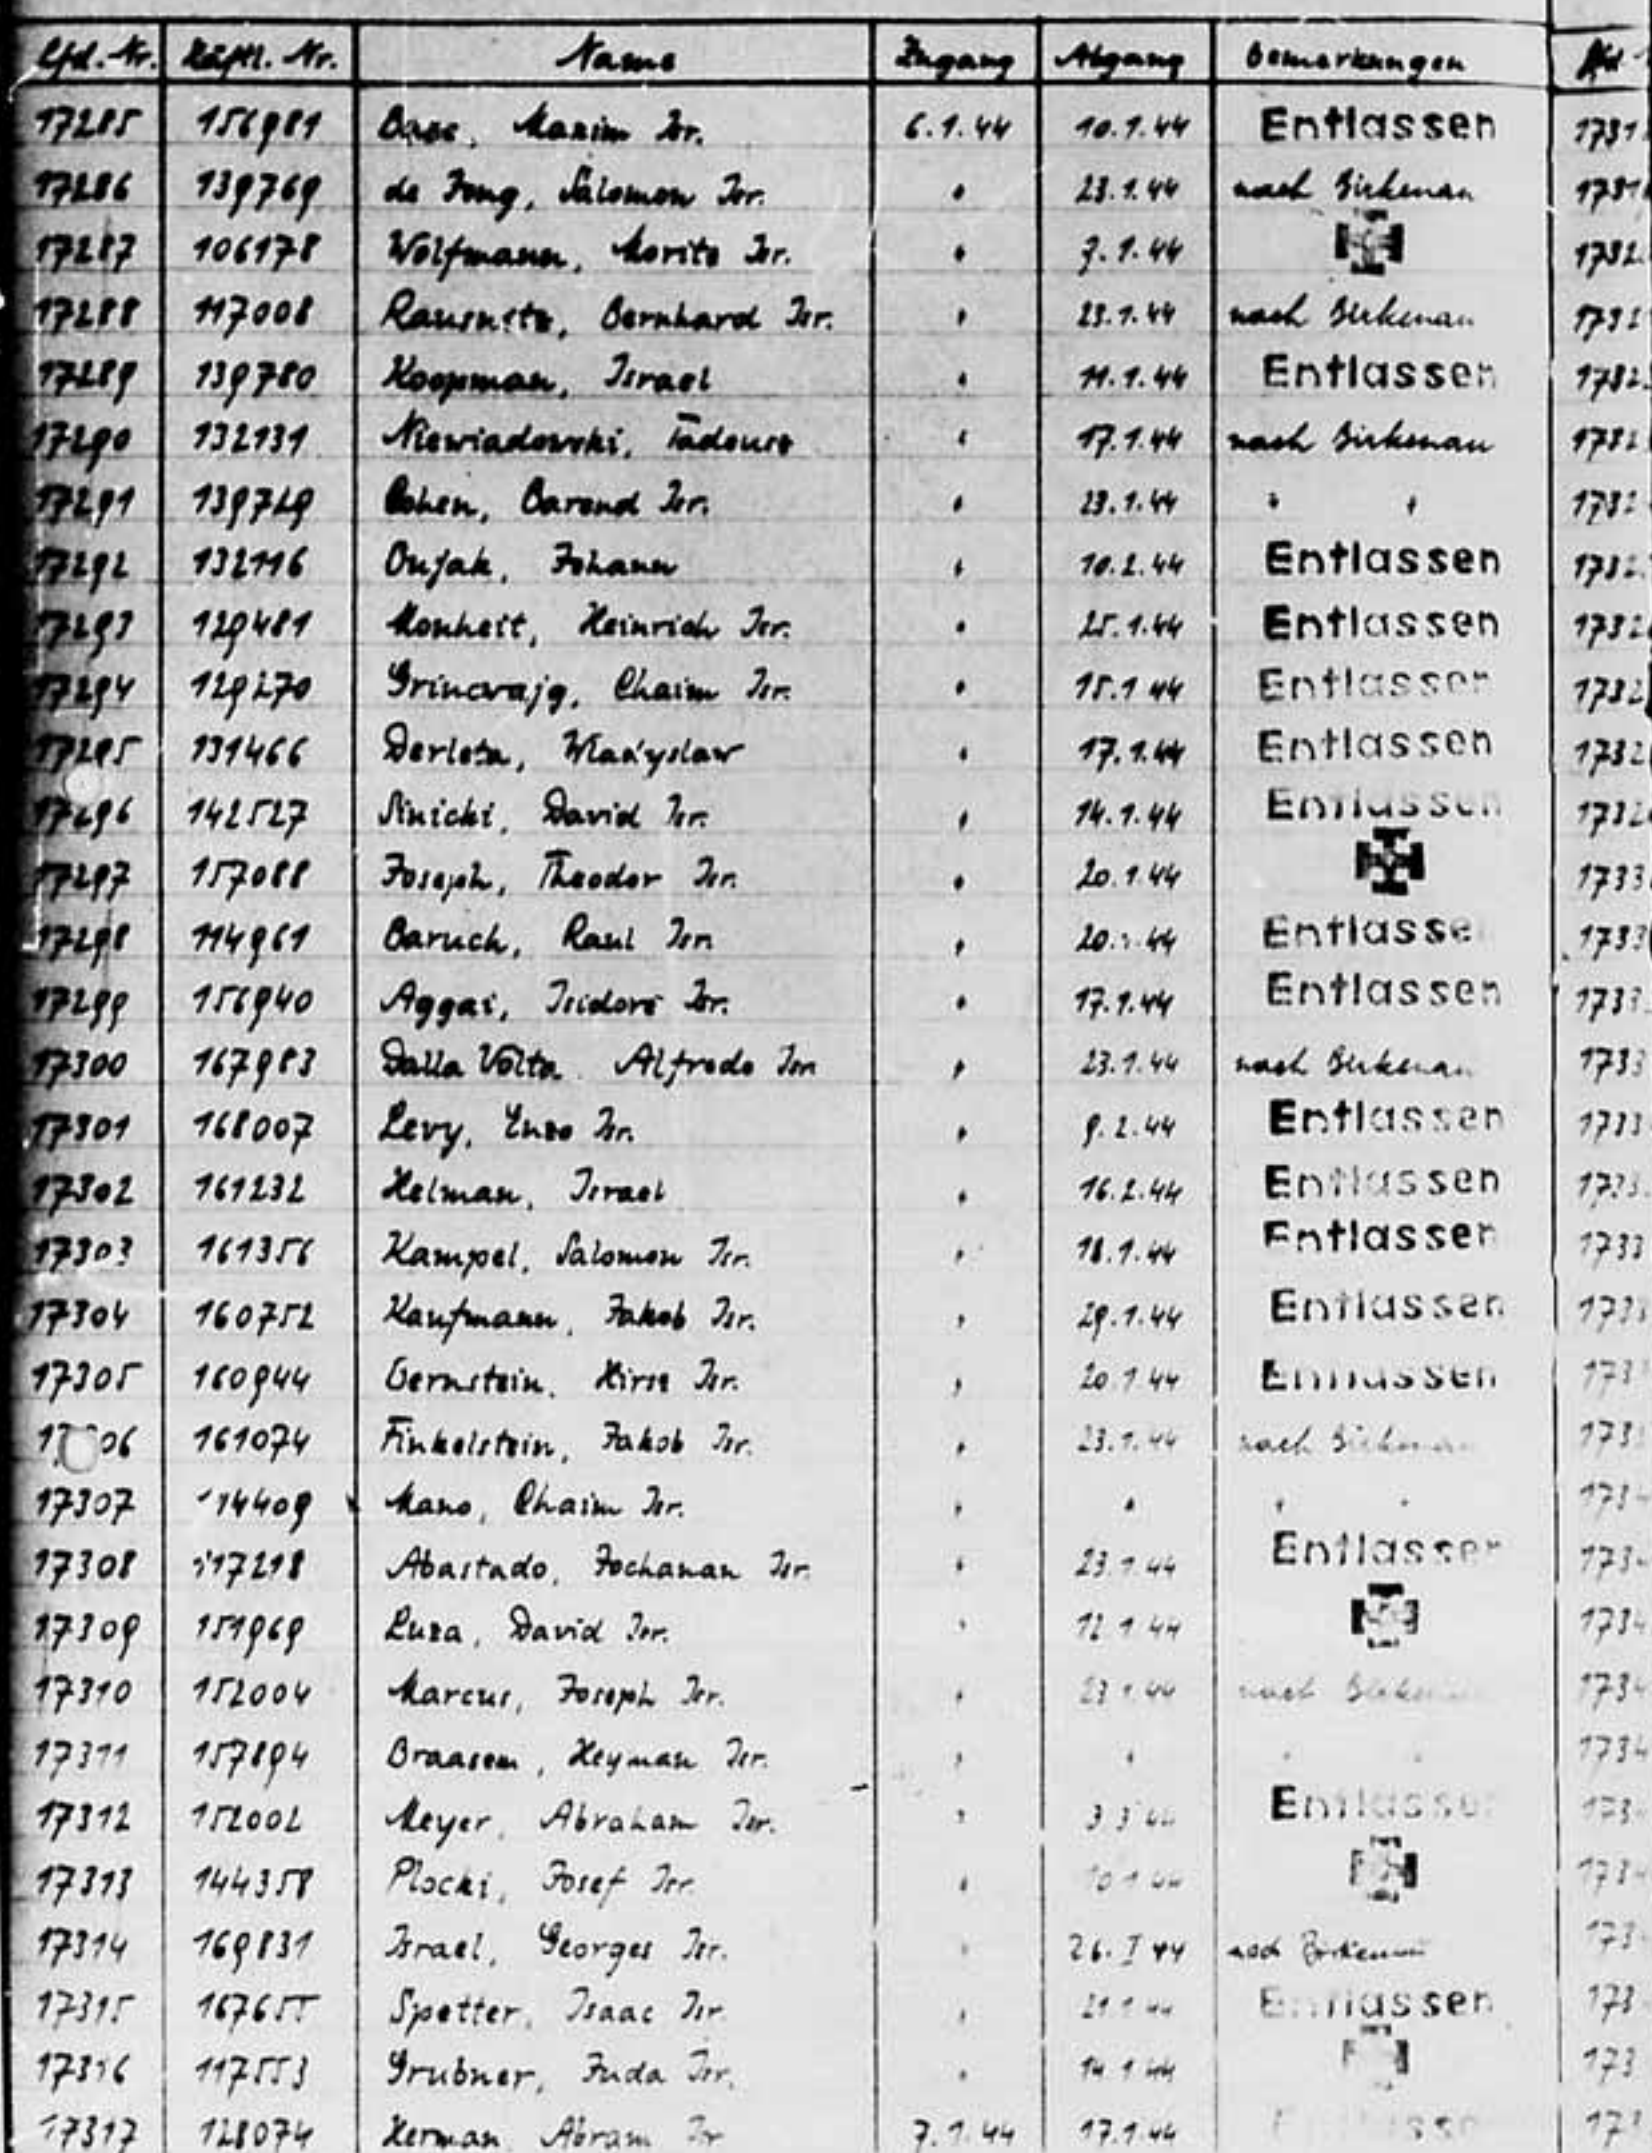 Lfd. Nr. Häftl. Nr. Name Zugang Abgang Bemerkungen Lfd
17285 156981 Maxim Isr. 6.1.44 10.1.44 Entlassen
17286 139769 de Jong, Salomon Isr. " 23.1.44 nach Birkenau
17287 106178 Wolfmann, Moritz Isr. " 7.1.44
17288 117008 Rausnitz, Bernhard Isr. " 23.1.44 nach Birkenau
17289 139780 Koopman, Israel " 11.1.44 Entlassen
17290 132131 Niewiadowski, Tadeusz " 17.1.44 nach Birkenau
17291 139729 Cohen, Barend Isr. " 23.1.44 " "
17292 132116 Bujak, Johann " 10.2.44 Entlassen
17293 129481 Monheit, Heinrich Isr. " 25.1.44 Entlassen
17294 129270 Grincvajg, Chaim Isr. " 15.1.44 Entlassen
17295 131466 Derleta, Wladyslaw " 17.1.44 Entlassen
17296 142527 Sinicki, David Isr. " 14.1.44 Entlassen
17297 157088 Joseph, Theodor Isr. " 20.1.44
17298 114961 Baruch, Raul Isr. " 20.1.44 Entlassen
17299 156940 Aggai, Isidore Isr. " 17.1.44 Entlassen
17300 167983 Dalla Volta Alfredo Isr. " 23.1.44 nach Birkenau
17301 168007 Levy, Enzo Isr. " 9.2.44 Entlassen
17302 161232 Helman, Israel " 16.2.44 Entlassen
17303 161356 Kampel, Salomon Isr. " 18.1.44 Entlassen
17304 160752 Kaufmann, Jakob Isr. " 29.1.44 Entlassen
17305 160944 Bernstein, Hirsz Isr. " 20.1.44 Entlassen
17306 161074 Finkelstein, Jakob Isr. " 23.1.44 nach Birkenau
17307 114409 Mano, Chaim Isr. " " " "
17308 117218 Abastado, Jochanan Isr. " 23.1.44 Entlassen
17309 151969 Luza, David Isr. " 12.1.44
17310 152004 Marcus, Joseph Isr. " 23.1.44 nach Birkenau
17311 157894 Braasem, Heyman Isr. " " " "
17312 152002 Meyer, Abraham Isr. " 3.3.44 Entlassen
17313 144358 Plocki, Josef Isr. " 10.1.44
17314 169831 Israel, Georges Isr. " 26.I 44 nach Birkenau
17315 167655 Spetter, Isaac Isr. " 21.1.44 Entlassen
17316 117553 Grubner, Juda Isr. " 14.1.44
17317 128074 Herman Abram Isr 7.1.44 17.1.44 Entlassen